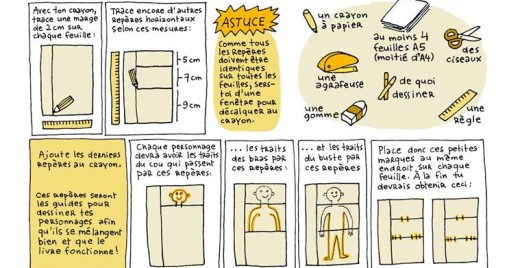 Avec ton crayon,
trace une marge
de 2 cm sur
chaque feuille :
Trace encore d'autres
repères horizontaux
selon ces mesures :
5 cm
7 cm
9 cm
ASTUCE
Comme tous
les repères
doivent être
identiques
sur toutes les
feuilles, sers-
toi d'une
fenêtre pour
décalquer au
crayon.
un crayon
à papier
au moins 4
feuilles A5
(moitié d'A4)
des
ciseaux
une
agrafeuse
de quoi
dessiner
une
gomme
une
règle
Ajoute les derniers
repères au crayon.
Ces repères seront
les guides pour
dessiner tes
personnages afin
qu'ils se mélangent
bien et que le
livre fonctionne!
Chaque personnage
devra avoir les traits
du cou qui passent
par ces repères:
... les traits
des bras par
ces repères :
... et les traits
du buste par
ces repères
Place donc ces petites
marques au même
endroit sur chaque
feuille. À la fin tu
devrais obtenir ceci :